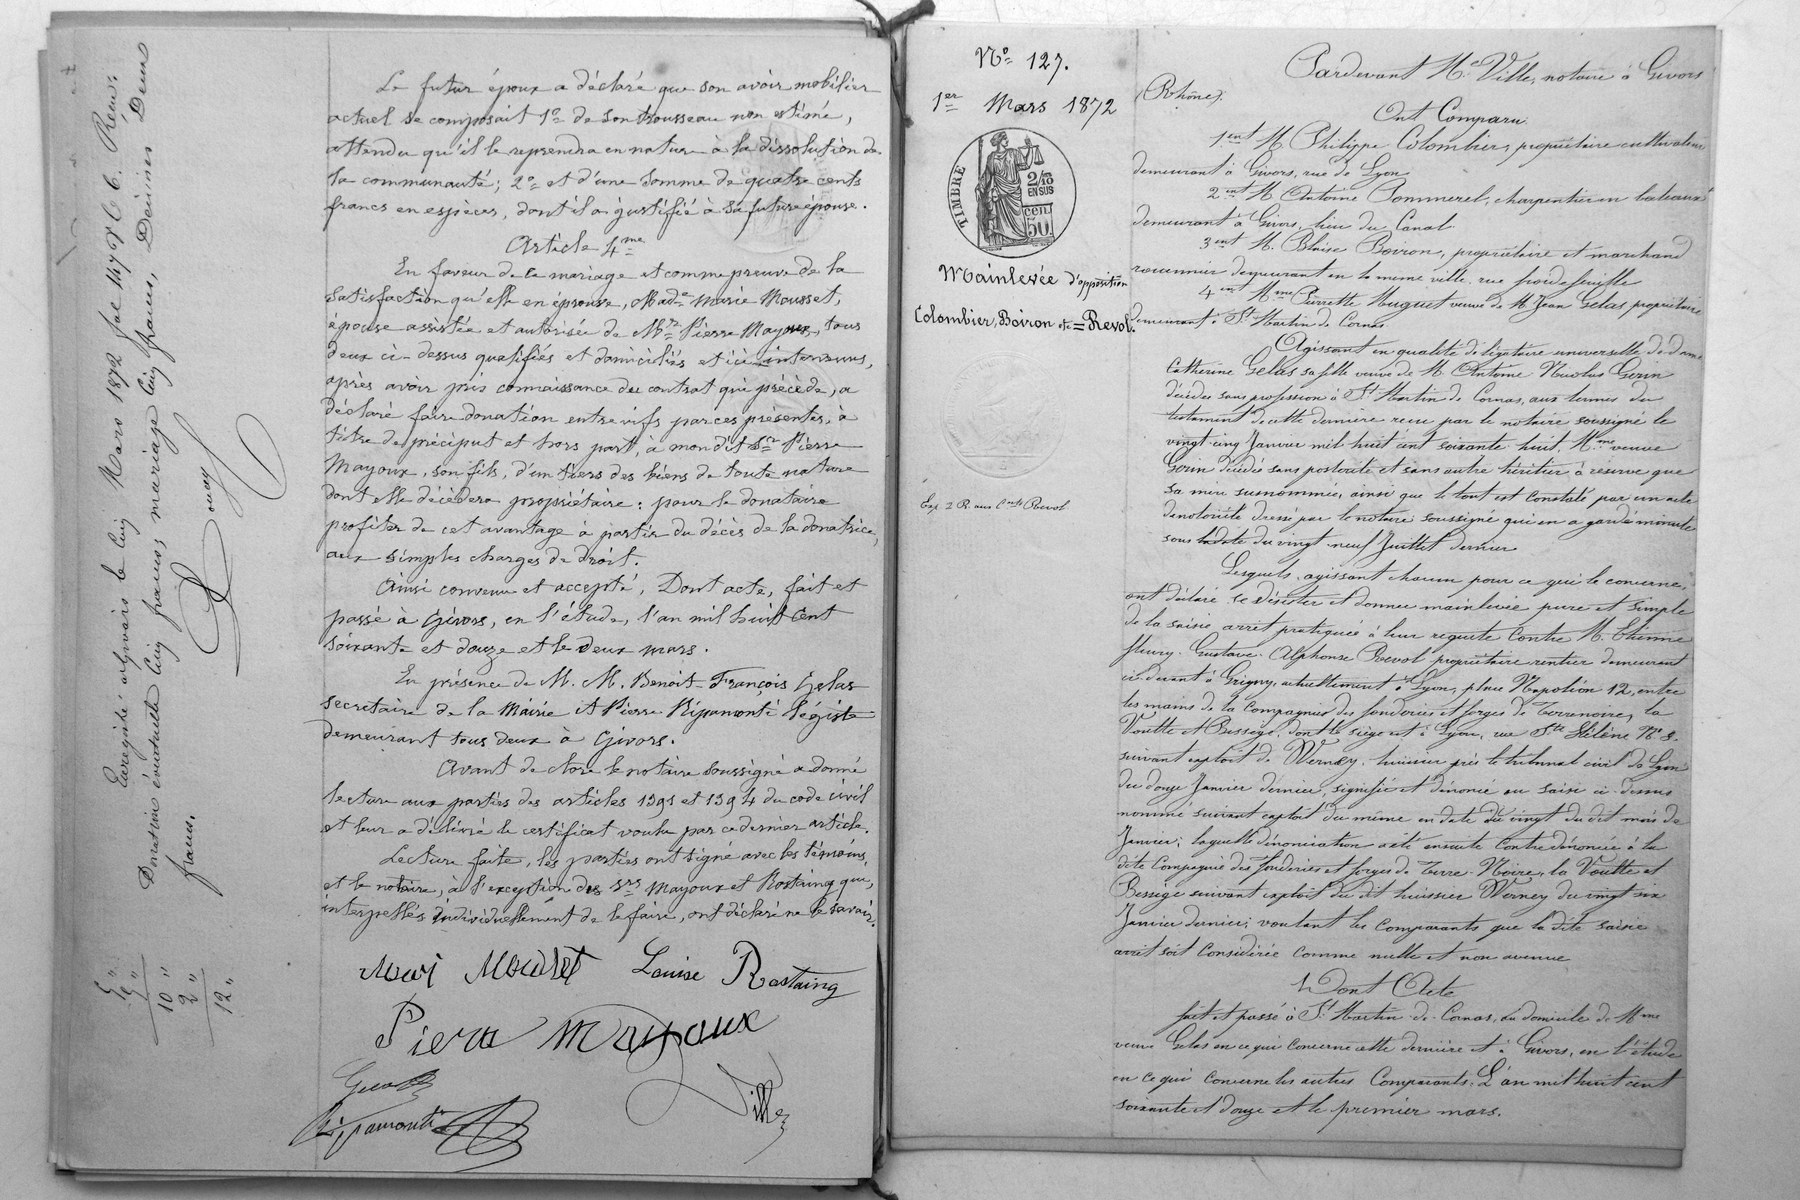 Le futur époux a déclaré que son avoir mobilier
actuel se composait 1º de son trousseau non estimé,
attendu qu'il le reprendra en nature à la dissolution de
la communauté; 2º et d'une somme de quatre cents
francs en espèces, dont il a justifié à sa future épouse.
Article 4me
En faveur de ce mariage et comme preuve de la
satisfaction qu'elle en éprouve, Made Marie Mousset,
épouse assistée et autorisée de Mr Pierre Mayoux, tous
deux ci-dessus qualifiés et domiciliés et ici intervenus,
après avoir pris connaissance du contrat qui précède, a
déclaré faire donation entre vifs par ces présentes, à
titre de préciput et hors part, à mon dit Sr Pierre
Mayoux, son fils, d'un tiers des biens de toute nature
dont elle décèdera propriétaire: pour le donataire
profiter de cet avantage à partir du décès de la donatrice,
aux simples charges de droit.
Ainsi convenu et accepté, Dont acte, fait et
passé à Givors, en l'étude, l'an mil huit cent
soixante et douze et le deux mars.
En présence de M. M. Benoit-François Gelas
secretaire de la Mairie et Pierre Ripamonti légiste
demeurant tous deux à Givors.
Avant de clore le notaire soussigné a donné
lecture aux parties des articles 1391 et 1394 du code civil
et leur a délivré le certificat voulu par ce dernier article.
Lecture faite, les parties ont signé avec les témoins,
et le notaire, à l'exception des Srs Mayoux et Rostaing qui,
interpellés individuellement de le faire, ont déclaré ne le savoir.
Mari Mousset Louise Rostaing
Piere Mayoux
Gelas
Ripamonti
Ville
Enregistré à Givors le cinq Mars 1872 fol 147 Vº C 6. Reçu:
Donation éventuelle cinq francs, mariage cinq francs, Décimes Deux
francs.
5 "
5 "
10 "
2 "
12 "
Nº 127.
1er Mars 1872
TIMBRE
2/10
EN SUS
50 cen
Mainlevée d'opposition
Colombier, Boiron etc = Revol.
Exp. 2 R. aux Cents Revol
Pardevant Me Ville, notaire à Givors
(Rhône).
Ont Comparu
1ent M. Philippe Colombier, propriétaire cultivateur
demeurant à Givors, rue de Lyon
2ent M. Antoine Pommerel, charpentier en bateaux
demeurant à Givors, lieu du Canal
3ent M. Blaise Boiron, propriétaire et marchand
rouennier demeurant en la meme ville, rue froidefeuille
4ent Mme Pierrette Muguet veuve de M Jean Gelas propriétaire
demeurant à St Martin de Cornas
Agissant en qualité de légataire universelle de dame
Catherine Gelas sa fille veuve de M. Antoine Nicolas Gorin
décédée sans profession à St Martin de Cornas, aux termes du
testament de cette dernière recu par le notaire soussigné le
vingt cinq Janvier mil huit cent soixante huit, Mme veuve
Gorin décédée sans postérité et sans autre héritier à réserve que
sa mère susnommée, ainsi que le tout est constaté par un acte
de notoriété dressé par le notaire soussigné qui en a gardé minute
sous la date du vingt neuf Juillet dernier
Lesquels, agissant chacun pour ce qui le concerne,
ont déclaré se désister et donner mainlevée pure et simple
de la saisie arrêt pratiquée à leur requête contre M. Etienne
fleury Gustave Alphonse Revol propriétaire rentier demeurant
ci devant à Grigny, actuellement à Lyon, place Napoléon 12, entre
les mains de la Compagnie des fonderies et forges de Terrenoire, la
Voulte et Bessège, dont le siège est à Lyon, rue Ste Hélène Nº 8.
suivant exploit de Verney, huissier près le tribunal civil de Lyon
du douze Janvier dernier, signifié et dénoncé au saisi ci-dessus
nommé suivant exploit du même en date du vingt du dit mois de
Janvier; laquelle dénonciation a été ensuite contredénoncée à la
dite Compagnie des fonderies et forges de Terre-Noire, la Voulte et
Bessège suivant exploit du dit huissier Verney du vingt six
Janvier dernier; voulant les comparants que la dite saisie
arrêt soit considérée comme nulle et non avenue
Dont Acte
fait et passé à St Martin-de-Cornas, au domicile de Mme
veuve Gelas en ce qui concerne cette dernière et à Givors, en l'étude
en ce qui concerne les autres Comparants, L'an mil huit cent
soixante et douze et le premier mars.